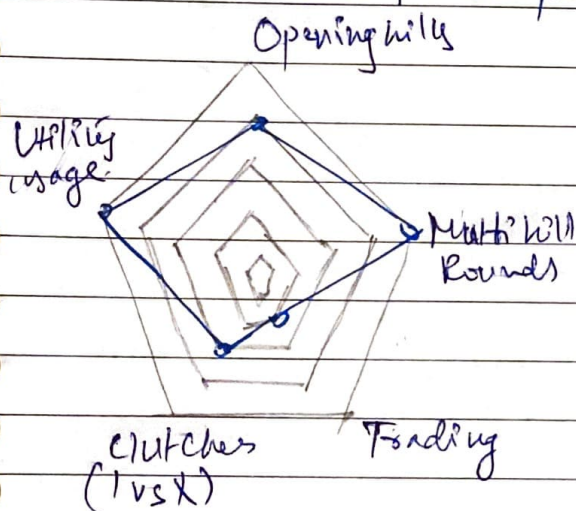 Opening kills
Utility
usage
Multi kill
Rounds
Clutches
(1 vs X)
Trading